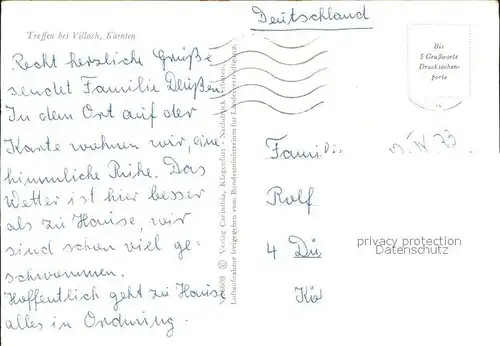 Deutschland
Treffen bei Villach, Kärnten
Bis
5 Grußworte
Drucksachen-
porto
Recht herzliche Grüße
sendet Familie
In dem Ort auf der
Karte wohnen wir, eine
himmliche Ruhe. Das
Wetter ist hier besser
als zu Hause, wir
sind schon viel ge-
schwommen.
Hoffentlich geht zu Hause
alles in Ordnung.
Verlag Carinthia, Klagenfurt - Nachdruck verboten.
Luftaufnahme freigegeben vom Bundesministerium für Landesverteidigung.
Famili
Rolf
4 Dü
privacy protection
Datenschutz